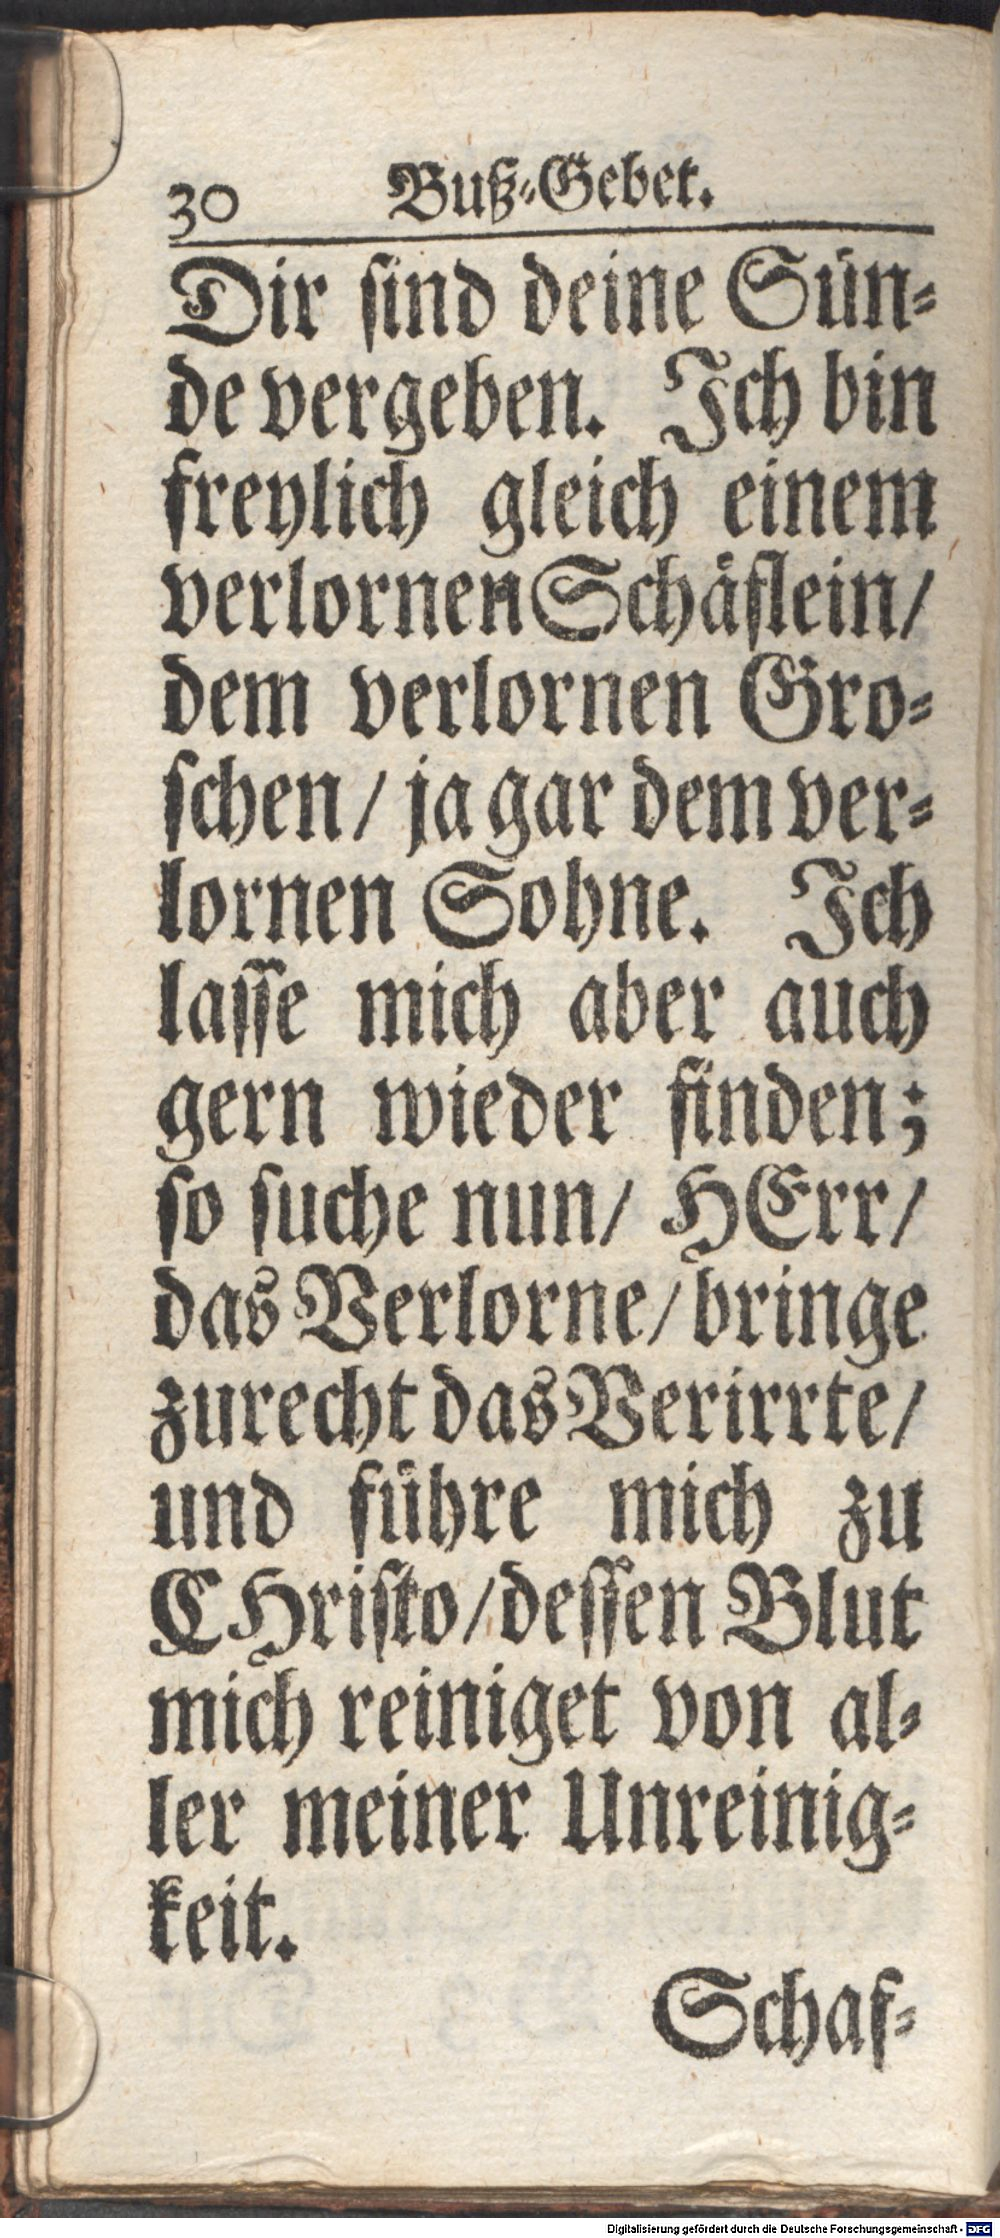 30 Buß-Gebet.
Dir sind deine Sün-
de vergeben. Ich bin
freylich gleich einem
verlornen Schäflein/
dem verlornen Gro-
schen/ ja gar dem ver-
lornen Sohne. Ich
lasse mich aber auch
gern wieder finden;
so suche nun/ HErr/
das Verlorne/ bringe
zurecht das Verirrte/
und führe mich zu
CHristo/ dessen Blut
mich reiniget von al-
ler meiner Unreinig-
keit.
Schaf-
Digitalisierung gefördert durch die Deutsche Forschungsgemeinschaft - DFG